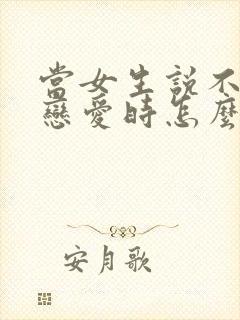 當女生説不
戀愛時怎麼
安月歌